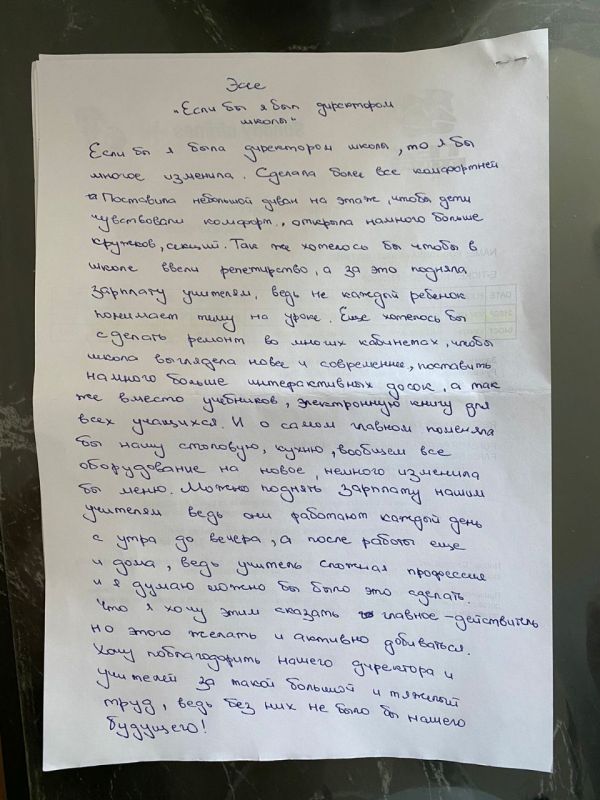 Эссе
„Если бы я был директором
школы“
Если бы я была директором школы, то я бы
многое изменила. Сделала более все комфортней
Поставила небольшой диван на этаж, чтобы дети
чувствовали комфорт, открыла намного больше
кружков, секций. Так же хотелось бы чтобы в
школе ввели репетирство, а за это подняла
зарплату учителям, ведь не каждый ребенок
понимает тему на уроке. Еще хотелось бы
сделать ремонт во многих кабинетах, чтобы
школа выглядела новее и современнее, поставить
намного больше интерактивных досок, а так
же вместо учебников, электронную книгу для
всех учащихся. И о самом главном поменяла
бы нашу столовую, кухню, вообщем все
оборудование на новое, немного изменила
бы меню. Можно поднять зарплату нашим
учителям ведь они работают каждый день
с утра до вечера, а после работы еще
и дома, ведь учитель сложная профессия
и я думаю можно бы было это сделать.
Что я хочу этим сказать главное - действитель
но этого желать и активно добиваться.
Хочу поблагодарить нашего директора и
учителей за такой большой и тяжелый
труд, ведь без них не было бы нашего
будущего!